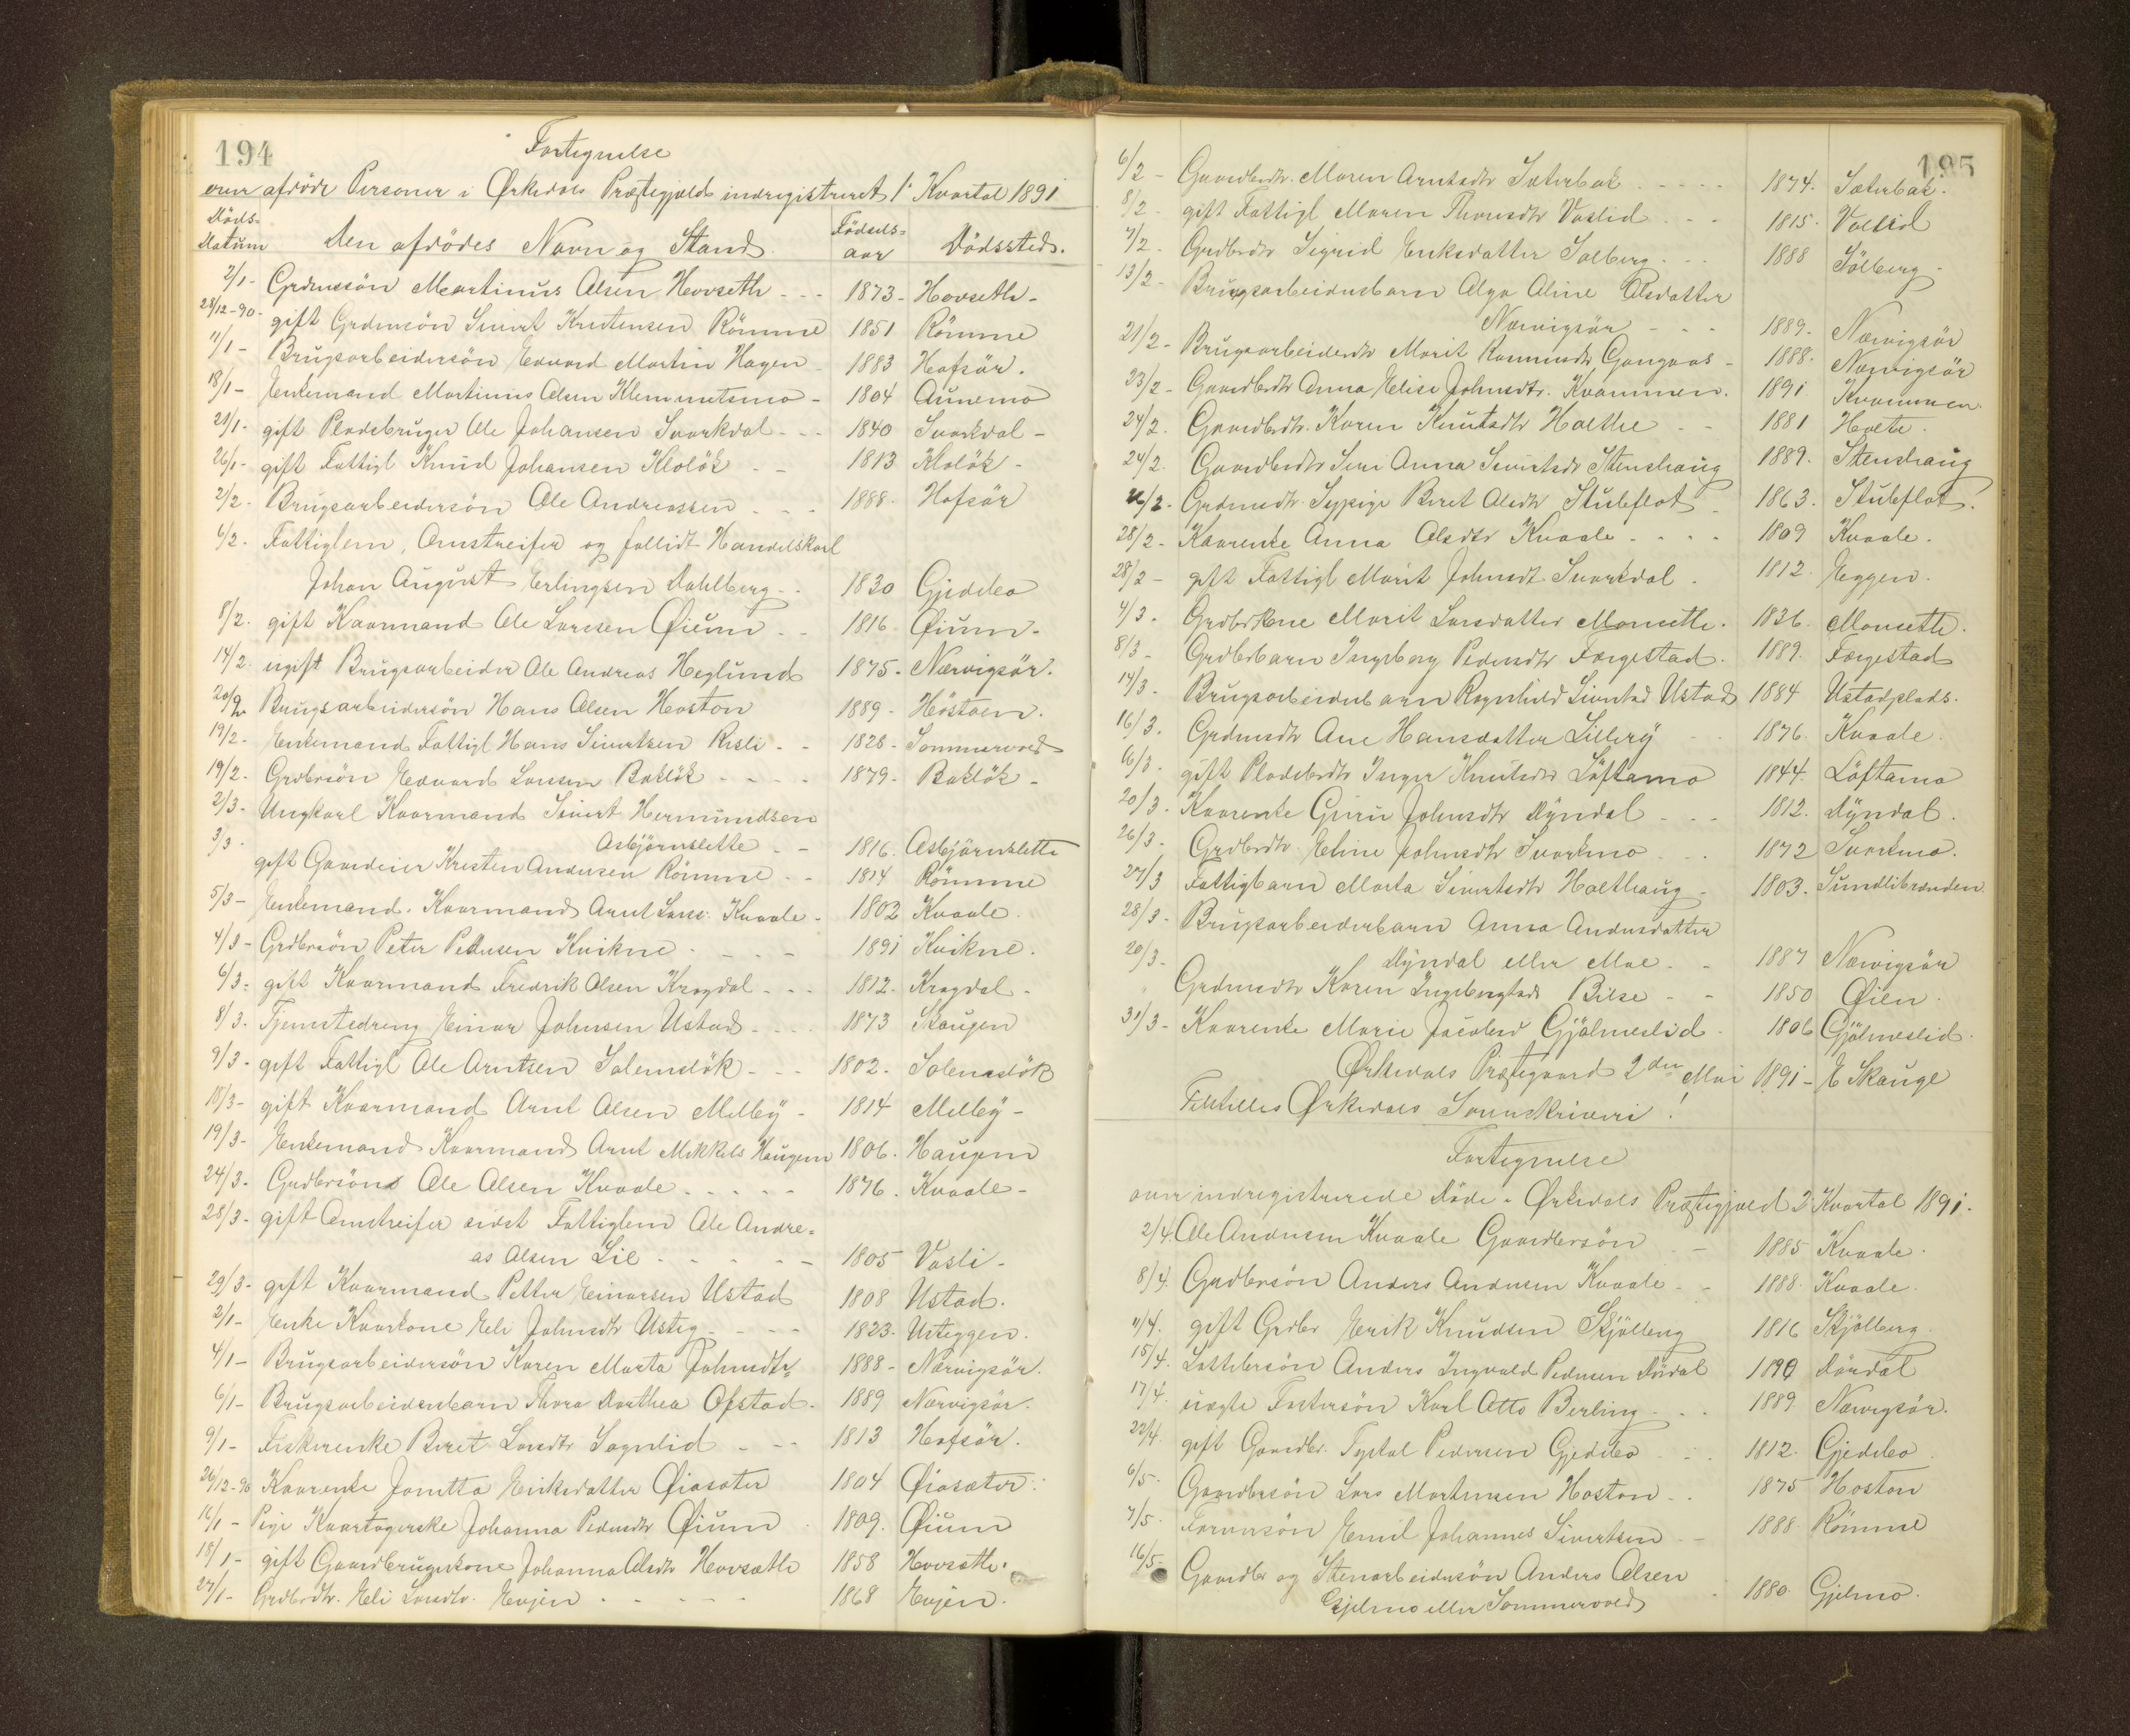 194
Fortegnelse
over afdöde Personer i Ørkedals Præstegjæld indregistreret 1' Kvartal 1891
Döds- Datum Den afdödes Navn og Stand Födsels= aar Dödssted.
2/1- Grdmssön Martinus Olsen Hovseth - - 1873 - Hovseth -
28/12-90- gift Grdmsön Sivert Kristensen Römme 1851 Römme
11/1- Brugsarbeidersön Edvard Martin Hagen 1883 Hofsör.
18/1- Enkemand Martinus Olsen Klemmetsmo - 1804 Aunemo
21/1- gift Pladsbruger Ole Johansen Svorkdal - - 1840 Svorkdal -
26/1- gift Fattigl Knud Johansen Kloløk - - 1813 Kloløk -
2/2- Brugsarbeidersön Ole Andreassen - - - 1888 - Hofsör
6/2- Fattiglem, Omstreifer og fallidt Handelskarl
Johan August Erlingsen Dahlberg - - 1830 Gjedebo
8/2- gift Kaarmand Ole Larsen Øium - - 1816 Øium -
14/2- ugift Brugsarbeider Ole Andreas Heglund 1875 - Nærvigsör.
20/2 Brugsarbeidersön Hans Olsen Hoston 1889 - Höstoen.
19/2- Enkemand Fattigl Hans Sivertsen Risli - - 1828 - Sommervold
19/2- Grdbrsön Edvard Larsen Bakløk - - - - 1879 - Bakløk -
2/3- Ungkarl Kaarmand Sivert Hermundsen
Asbjörnslette - - 1816. Asbjörnslette
3/3- gift Gaardeier Kristen Andersen Römme - - 1814 Römme
5/3- Enkemand. Kaarmand Arnt Larss. Kvaale - 1802 Kvaale.
4/3- Grdbrsön Peter Pedersen Kvikne - - - - 1891 Kvikne.
6/3- gift Kaarmand Fredrik Olsen Kragdal - - - 1812. Kragdal -
8/3- Tjenestedreng Einar Johnsen Ustad - - - 1873 Skaugen
9/3- gift Fattigl Ole Arntsen Solemsløk - - - 1802. Solemsløk
18/3- gift Kaarmand Arnt Olsen Melbÿ - 1814 Melbÿ -
19/3- Enkemand Kaarmand Arnt Mikkels Haugen 1806. Haugen
24/3- Gaardbrsön Ole Olsen Kvaale - - - - - 1876. Kvaale -
28/3- gift Omstreifer sidst Fattiglem Ole Andre=
as Olsen Lie - - - - - - 1805 Vasli -
29/3- gift Kaarmand Petter Einarsen Ustad 1808 Ustad.
2/1- Enke Kaarkone Eli Johnsdtr Usteg - - - - 1823. Usteggen.
4/1- Brugsarbeidersön Karen Marta Johnsdtr 1888 - Nærvigsör.
6/1- Brugsarbeiderbarn Thora Dorthea Ofstad - 1889 Nærvigsör.
9/1- Fiskerenke Beret Larsdtr Sognlid - - - 1813 Hofsör.
26/12-90 Kaarenke Jonetta Eriksdatter Øiasæter 1804 Øiasæter.
16/1- Pige Kaartagerske Johanna Pedersdtr Øium 1809. Øium
18/1- gift Gaardbrugerkone Johanna Olsdtr Hovsæth 1858 Hovsæth.
27/1- Grdbrdtr. Eli Larsdtr. Evjen - - - - - 1868 Evjen.
195
6/2- Gaardbrdtr. Maren Arntsdtr Sæterbak - - - 1874. Sæterbak.
8/2- gift Fattigl Maren Thomsdtr Vaslid - - - 1815. Vaslid
7/2- Grdbrdtr Sigrid Eriksdatter Solberg - - 1888 Sölberg -
13/2- Brugsarbeidersbarn Olga Oline Olsdatter
Nærvigsör - - - 1889. Nærvigsör
21/2- Brugsarbeiderdtr Marit Rasmusdtr Gangaas - 1888. Nærvigsör
23/2- Gaardbrdtr Anna Elise Johnsdtr. Kvammen. 1891 Kvammen.
24/2. Gaardbrdtr. Karen Knutsdtr Holthe - - 1881 Holte.
24/2. Gaardbrdtr Sine Anna Sivertsdr Stenshaug 1889. Stenshaug
26/2- Grdmsdtr. Sypige Beret Olsdtr Stubeflot 1863. Stubeflot.
28/2- Kaarenke Anna Olsdtr Kvaale - - - - 1809 Kvaale.
28/2- gift Fattigl Marit Johnsdt Svorkdal. 1812. Eggen.
4/3- Grdbrkone Marit Larsdatter Monsethe. 1836. Monsethe.
8/3- Grdbrbarn Ingeborg Pedersdtr Fægestad. 1889. Fægestad
14/3- Brugsarbeiderbarn Ragnhild Sivertsd Ustad 1884 Ustadplads.
16/3. Grdmsdtr Ane Hansdatter Lillerÿ - - 1876. Kvaale.
16/3- gift Pladsbrdtr Inger Knutsdtr Löftamo 1844. Löftamo
20/3- Kaarenke Guru Johnsdtr Dÿndal - - - 1812. Dÿndal.
26/3- Grdbrdtr. Eline Johnsdtr Svorkmo - - 1872 Svorkmo.
27/3 Fattigbarn Marta Sivertsdtr Holthaug - 1803. Sundlibrænden
28/3- Brugsarbeiderbarn Anna Andersdatter
Dÿndal eller Moe. - 1887 Nærvigsör
20/3- Grdmsdtr Karen Ingebrigtsdr Bilse - - 1850 Øien.
31/3- Kaarenke Marie Jacobsd Gjölmeslid - 1806 Gjölmeslid.
Ørkedals Præstegaard 2den Mai 1891 - E Skauge
Tilstilles Ørkedals Sorenskriveri!
Fortegnelse
over indregistrerede Döde i Ørkedals Præstegjæld 2' Kvartal 1891.
2/4. Ole Andersen Kvaale Gaardbrsön - 1885 Kvaale.
8/4. Grdbrsön Anders Andersen Kvaale - - 1888. Kvaale.
11/4. gift Grdbr Erik Knudsen Skjölberg 1816 Skjölberg.
15/4. Anders Ingvald Pedersen Dördal 1890 Dördal
17/4. uægte Fostersön Karl Otto Berbing - - 1889. Nærvigsör.
22/4. gift Gaardbr. Tystal Pedersen Gjedebo - - 1812. Gjedebo
6/5- Gaardbrsön Lars Martinsen Hoston - - 1875 Hoston
7/5- Emil Johannes Sivertsen - - 1888. Römme
16/5- Gaardbr og Stenarbeidersön Anders Olsen
Gjelmo eller Sommervold - 1880. Gjelmo.